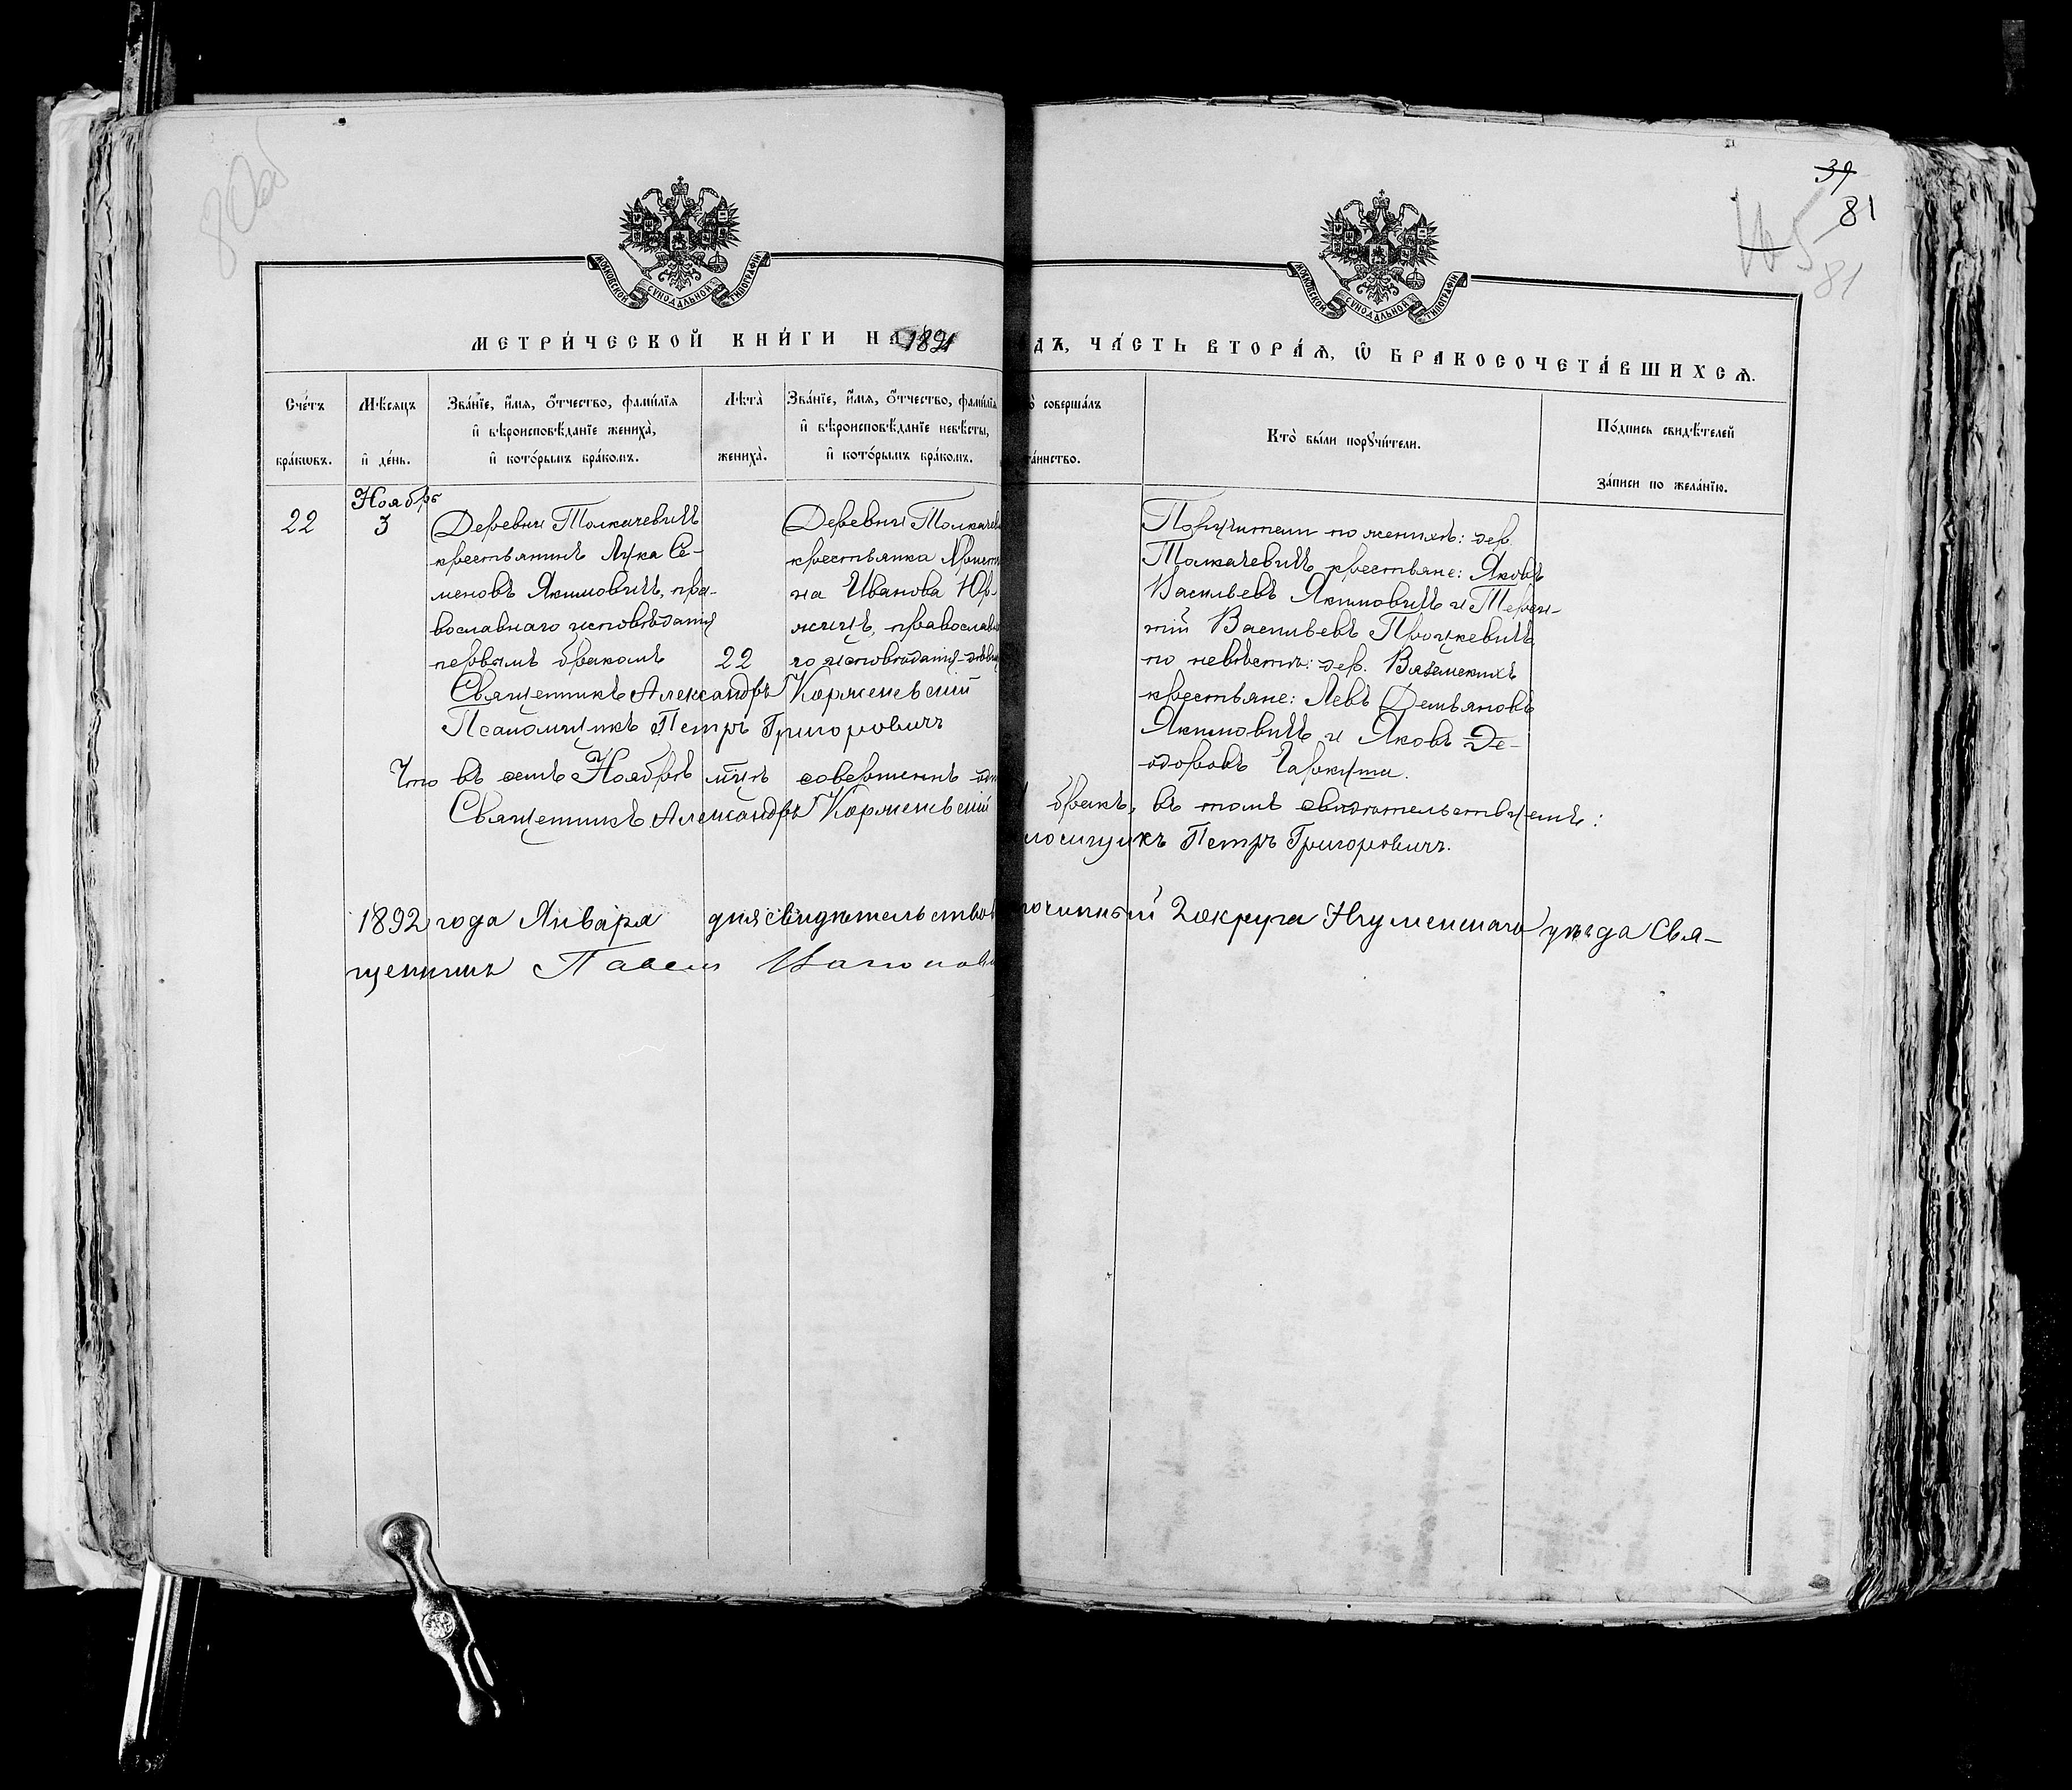 80об
39
81
81
МОСКОВСКОЙ СѴНОДАЛЬНОЙ ТИПОГРАФІИ
МОСКОВСКОЙ СѴНОДАЛЬНОЙ ТИПОГРАФІИ
МЕТРИ́ЧЕСКОЙ КНИ́ГИ НА 1891
ДЪ, ЧА́СТЬ ВТОРА́Ѧ, Ѽ БРАКОСОЧЕТА́ВШИХСѦ.
Сче́тъ
бра́кѡвъ.
Мѣ́сяцъ
и҆ де́нь.
Зва́нїе, и҆́мя, ѻ҆́тчество, фами́лїя
и҆ вѣроисповѣ́данїе жениха̀,
и҆ кото́рымъ бра́комъ.
Лѣ́та̀
жениха̀.
Зва́нїе, и҆́мя, ѻ҆́тчество, фами́лїя
и҆ вѣроисповѣ́данїе невѣ́сты,
и҆ кото́рымъ бра́комъ.
о̀ соверша́лъ
та́инство.
Кто̀ бы́ли порꙋчи́тели.
По́дпись свидѣ́телей
за́писи по жела́нїю.
22
Ноябрь
3
Деревни Толкачевичъ
крестьянинъ Лука Се-
меновъ Якимовичъ, пра-
вославнаго исповѣданія
первымъ бракомъ
22
Деревни Толкачев
крестьянка Христи
на Иванова Юр-
православна
го исповѣданія
Священникъ Александръ Корженевскій
Псаломщикъ Петръ Григоровичъ
Поручители по женихѣ: дер.
Толкачевичъ крестьяне: Яковъ
Васильевъ Якимовичъ и Терен-
тій Васильевъ Прочкевичъ
по невѣстѣ: дер. Вяземскихъ
крестьяне: Левъ Демьяновъ
Якимовичъ и Яковъ Ѳе-
одоровъ Гаркуша.
Что въ семъ Ноябрѣ м-цѣ совершенъ одн
бракъ, въ томъ свидѣтельствуемъ:
Священникъ Александръ Корженевскій
ломщикъ Петръ Григоровичъ.
1892 года Января дня свидѣтельствов
гочинный 2 округа Игуменскаго уѣзда Свя-
щенникъ Павелъ